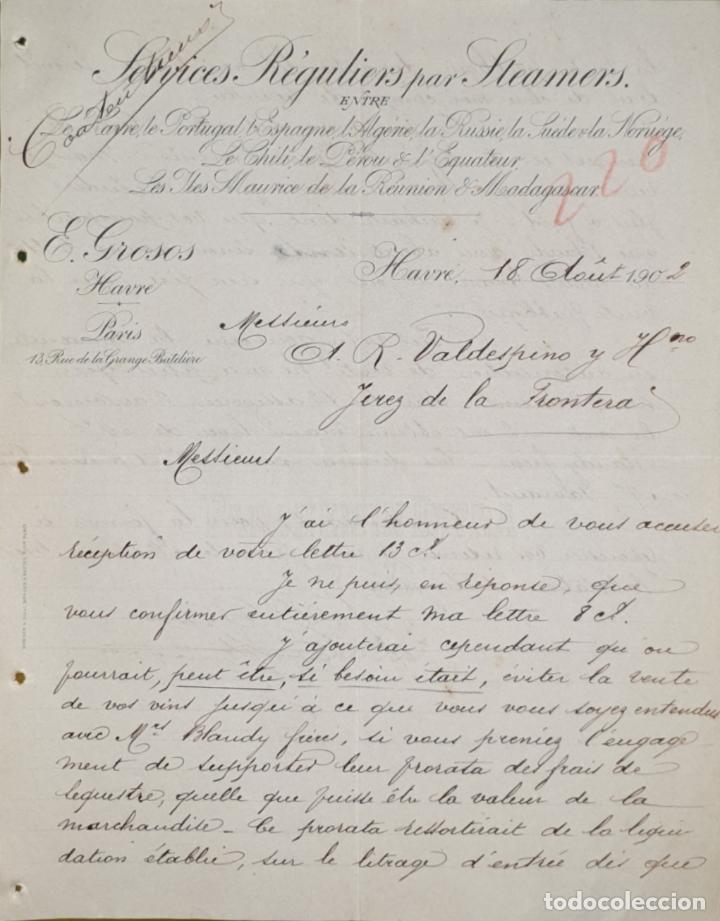 Services Réguliers par Steamers.
ENTRE
Le Havre, le Portugal, l'Espagne, l'Algérie, la Russie, la Suède & la Norvège,
Le Chili, le Pérou & l'Equateur
Les Iles Maurice de la Réunion & Madagascar.
220
E. Grosos
Havre
Paris
13, Rue de la Grange Batelière
Havre, 18 Août 1902
Messieurs
A. R. Valdespino y Hno
Jerez de la Frontera
Messieurs
J'ai l'honneur de vous accuser
réception de votre lettre 13 ct.
Je ne puis, en réponse, que
vous confirmer entièrement ma lettre 8 ct.
J'ajouterai cependant qu'on
pourrait, peut être, si besoin était, éviter la vente
de vos vins jusqu'à ce que vous vous soyez entendus
avec Mrs Blandy frères, si vous preniez l'engage
ment de supporter leur prorata des frais de
sequestre, quelle que puisse être la valeur de la
marchandise - Ce prorata ressortirait de la liqui
dation établie, sur le litrage d'entrée dès que
todocoleccion